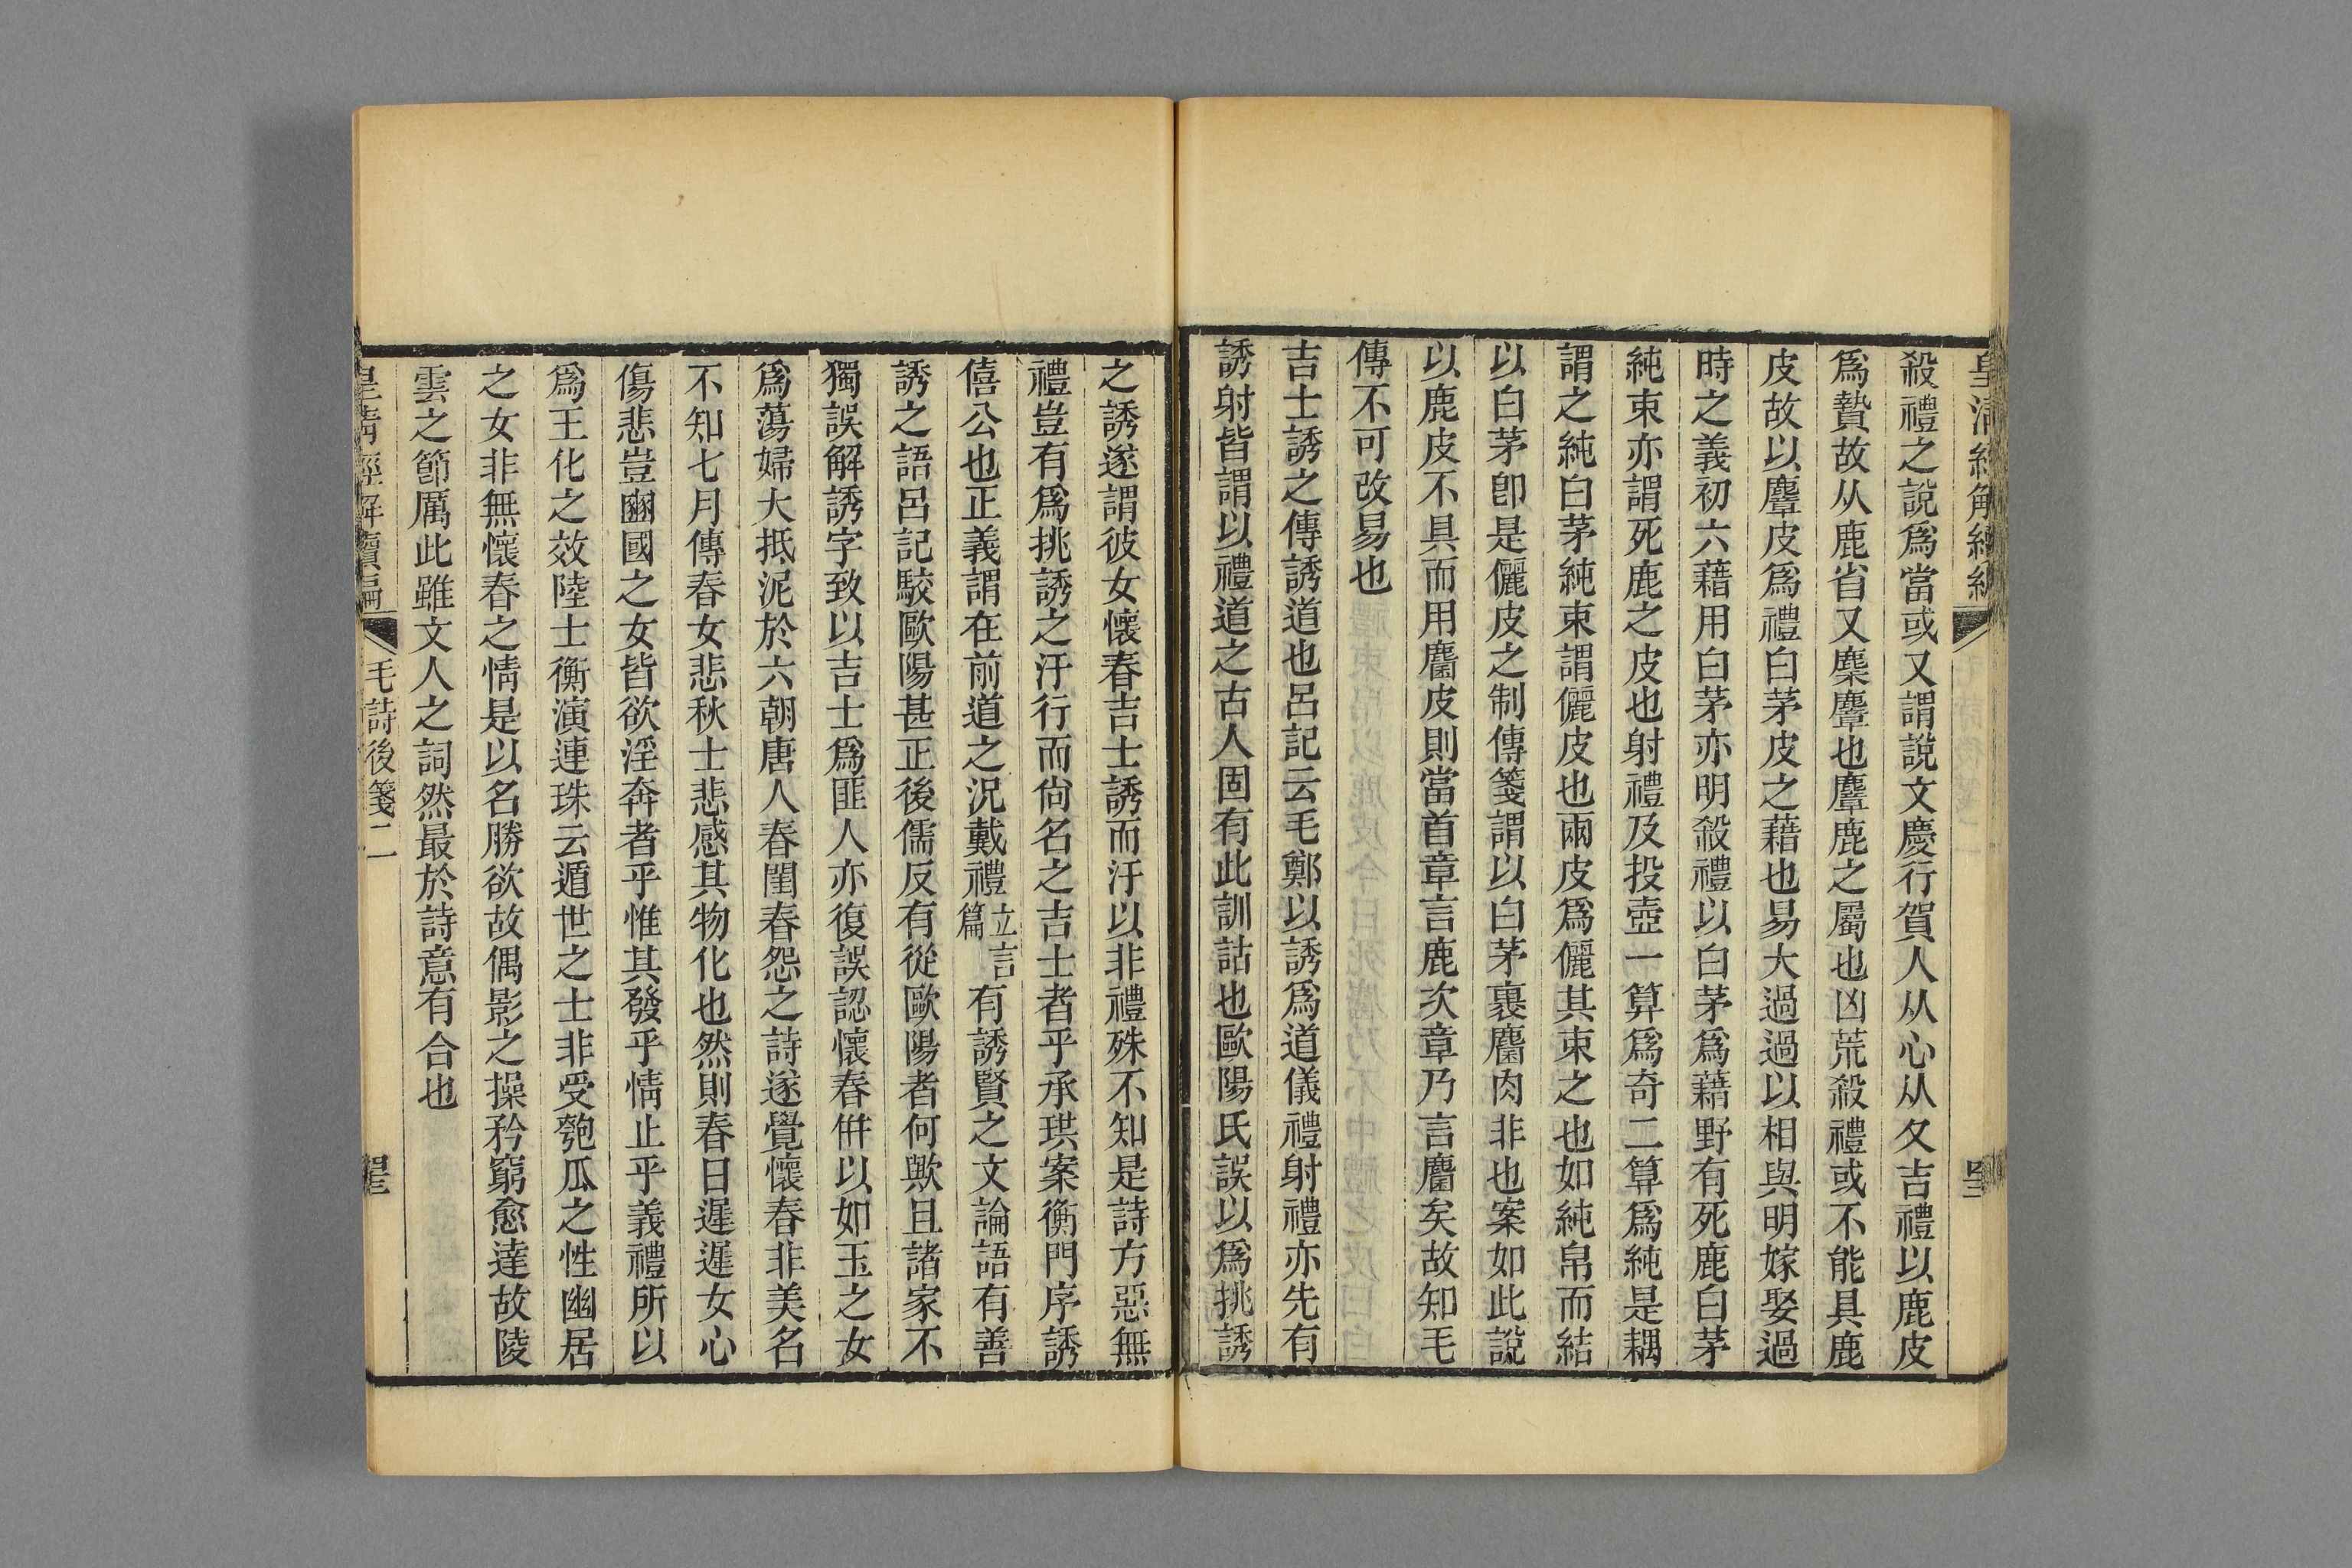 殺禮之說爲當或又謂說文慶行賀人从心从夂吉禮以鹿皮
爲贄故从鹿省又麇麞也麞鹿之屬也凶荒殺禮或不能具鹿
皮故以麞皮爲禮白茅皮之藉也易大過過以相與明嫁娶過
時之義初六藉用白茅亦明殺禮以白茅爲藉野有死鹿白茅
純束亦謂死鹿之皮也射禮及投壺一算爲奇二算爲純是耦
謂之純白茅純束謂儷皮也兩皮爲儷其束之也如純帛而結
以白茅卽是儷皮之制傳箋謂以白茅裹麕肉非也案如此說
以鹿皮不具而用麕皮則當首章言鹿次章乃言麕矣故知毛
傳不可改易也
吉士誘之傳誘道也呂記云毛鄭以誘爲道儀禮射禮亦先有
誘射皆謂以禮道之古人固有此訓詁也歐陽氏誤以爲挑誘
之誘遂謂彼女懷春吉士誘而汙以非禮殊不知是詩方惡無
禮豈有爲挑誘之汙行而尙名之吉士者乎承珙案衡門序誘
僖公也正義謂在前道之況戴禮立言篇有誘賢之文論語有善
誘之語呂記駁歐陽甚正後儒反有從歐陽者何歟且諸家不
獨誤解誘字致以吉士爲匪人亦復誤認懷春倂以如玉之女
爲蕩婦大抵泥於六朝唐人春閨春怨之詩遂覺懷春非美名
不知七月傳春女悲秋士悲感其物化也然則春日遲遲女心
傷悲豈豳國之女皆欲淫奔者乎惟其發乎情止乎義禮所以
爲王化之效陸士衡演連珠云遁世之士非受匏瓜之性幽居
之女非無懷春之情是以名勝欲故偶影之操矜窮愈達故陵
雲之節厲此雖文人之詞然最於詩意有合也
皇淸經解續編 毛詩後箋二